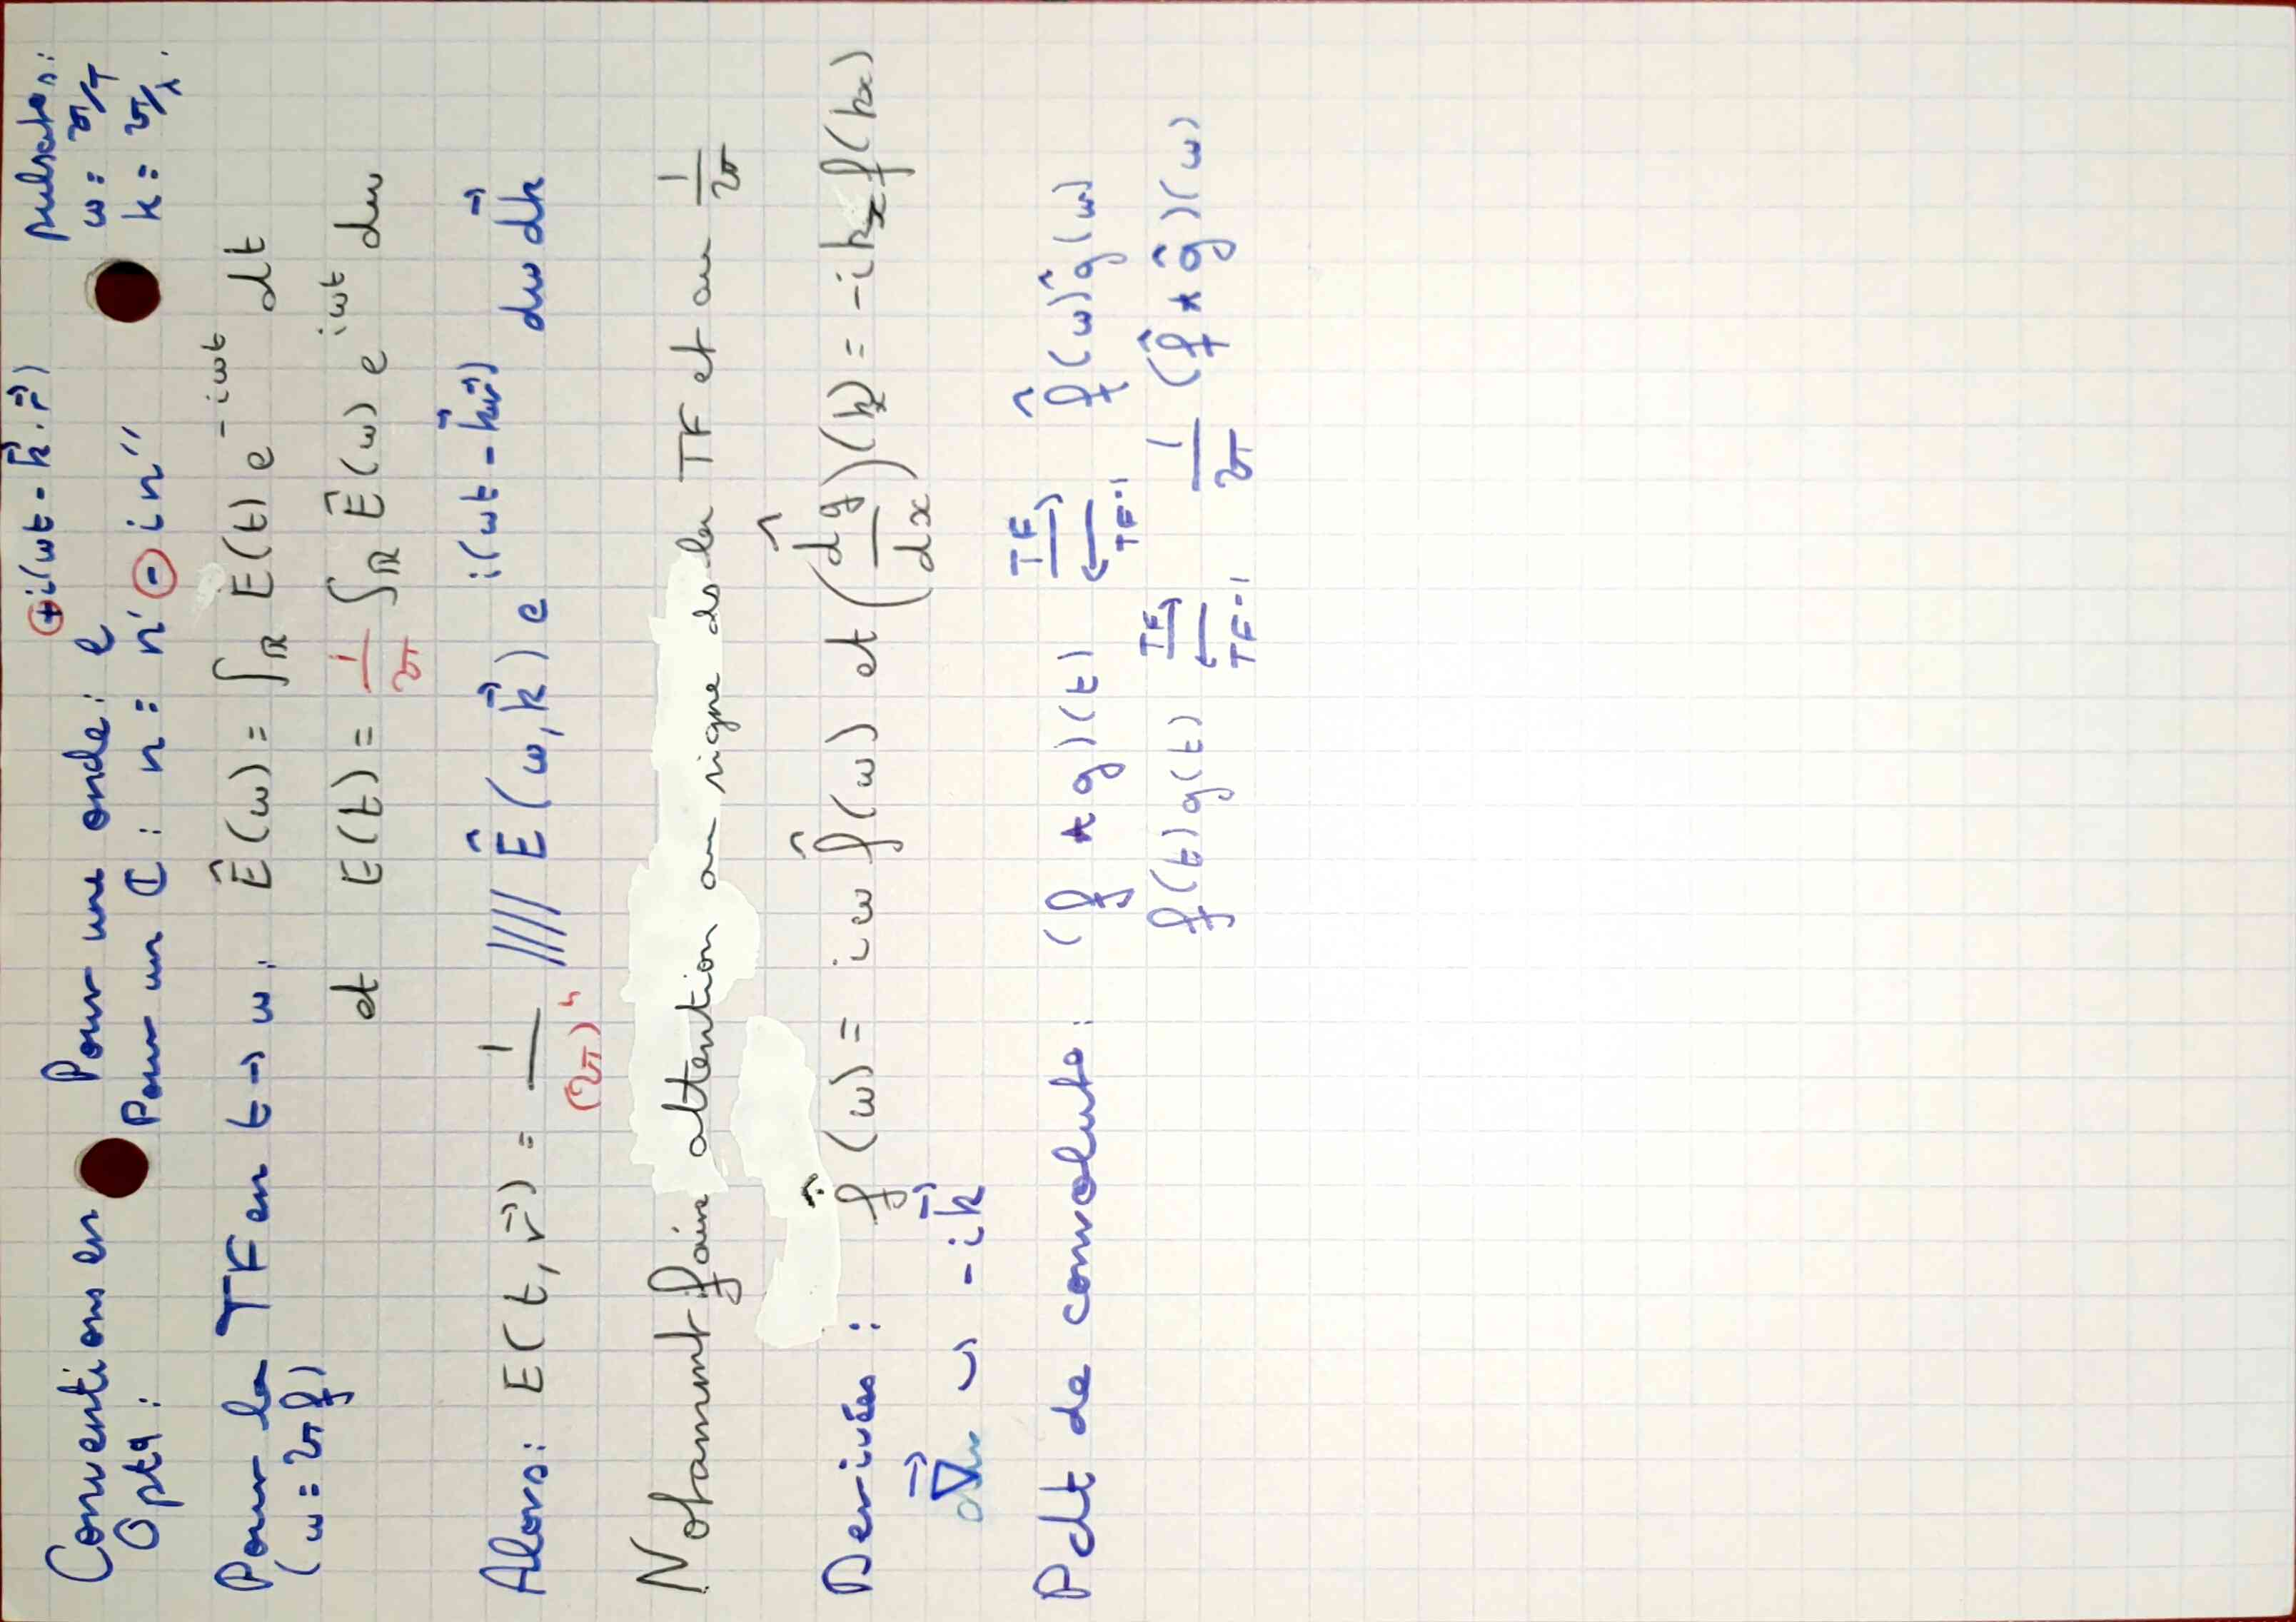 Conventions en Opt^q : Pour une onde : e^{+i(ωt - k⃗.r⃗)} pulsato :
Pour un ℂ : n = n' - in'' ω = 2π/T
k = 2π/λ.
Pour la TF en t → ω : Ê(ω) = ∫_ℝ E(t) e^{-iωt} dt
(ω = 2πf) et E(t) = 1/2π ∫_ℝ Ê(ω) e^{iωt} dω
Alors : E(t, r⃗) = 1/(2π)^4 //// Ê(ω, k⃗) e^{i(ωt - k⃗.r⃗)} dω dk⃗
Notamment faire attention au signe ds la TF et au 1/2π
Derivées : f̂ (ω) = iω f̂(ω) et (dg/dx)^(k_x) = -ik_x f(kx)
∇⃗ ↪ -ik⃗
Pdt de convoluto : (f * g)(t) TF→ ←TF-1 f̂(ω) ĝ(ω)
f(t) g(t) TF→ ←TF-1 1/2π (f̂ * ĝ)(ω)